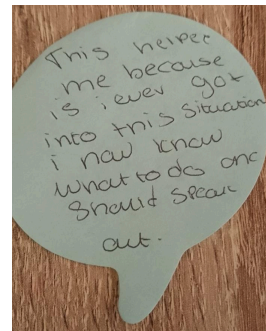 This helped
me because
is i ever got
into this situation
i now know
what to do and
should speak
out.